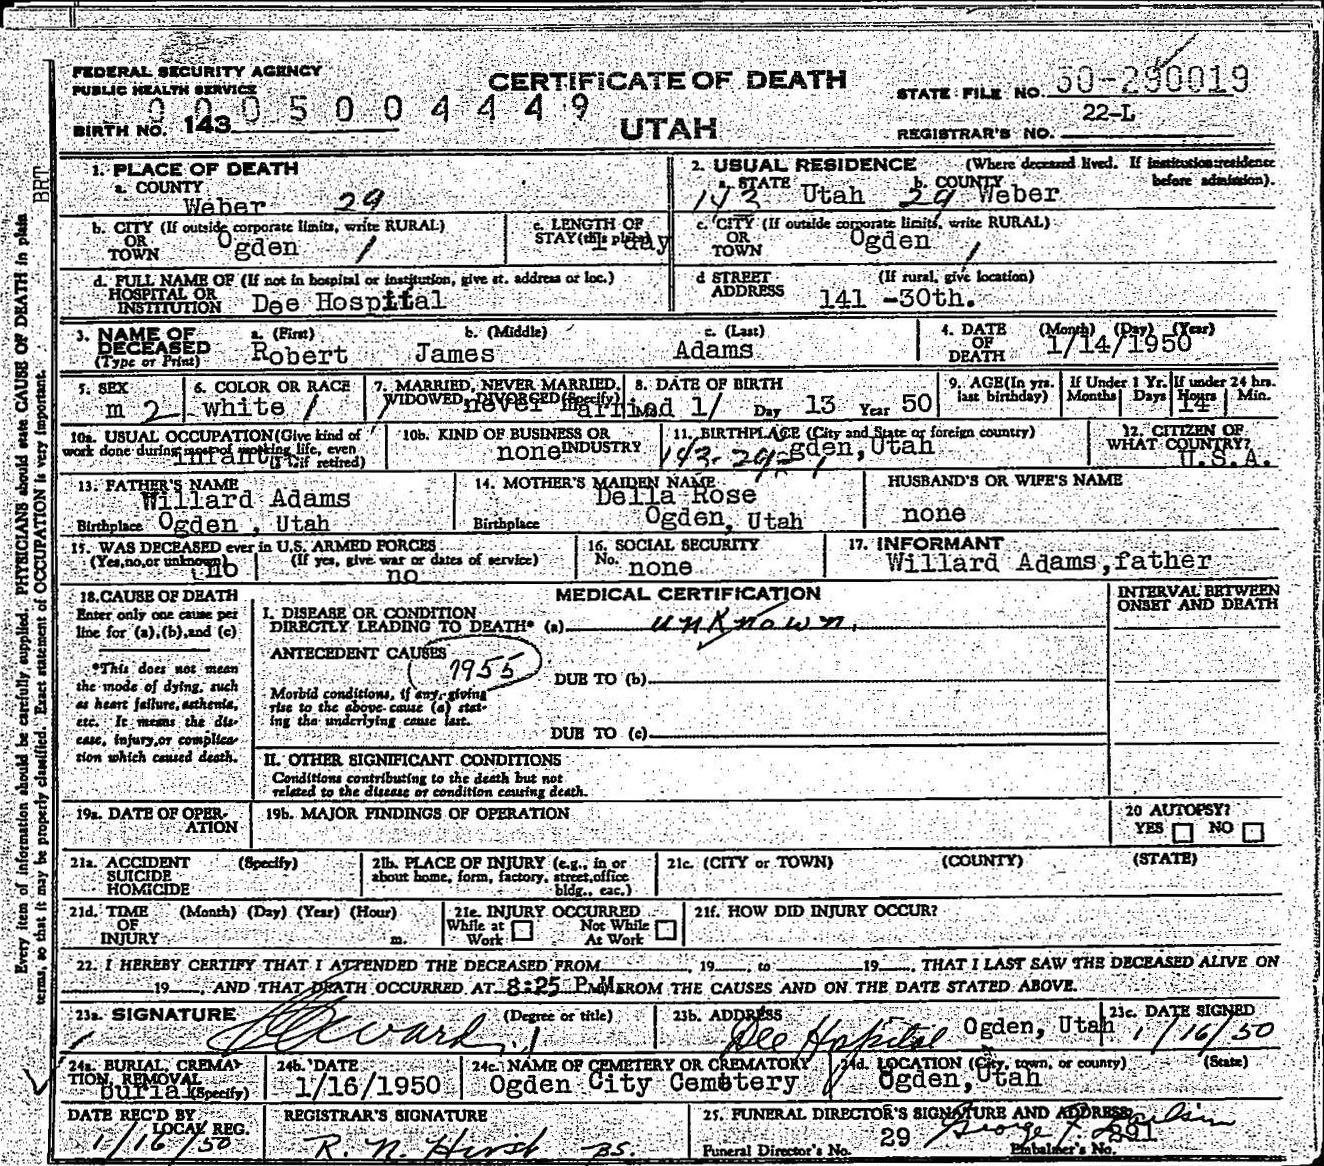 FEDERAL SECURITY AGENCY
PUBLIC HEALTH SERVICE
CERTIFICATE OF DEATH
UTAH
STATE FILE NO. 50-290019
22-L
REGISTRAR'S NO.
0005004449
BIRTH NO. 143
BRT
Every item of information should be carefully supplied. PHYSICIANS should state CAUSE OF DEATH in plain
terms, so that it may be properly classified. Exact statement of OCCUPATION is very important.
1. PLACE OF DEATH
a. COUNTY
Weber 29
2. USUAL RESIDENCE (Where deceased lived. If institution: residence
before admission).
a. STATE Utah b. COUNTY Weber
143 29
b. CITY (If outside corporate limits, write RURAL)
OR
TOWN Ogden 1
c. LENGTH OF
STAY (this place) 1 day
c. CITY (If outside corporate limits, write RURAL)
OR
TOWN Ogden 1
d. FULL NAME OF (If not in hospital or institution, give st. address or loc.)
HOSPITAL OR
INSTITUTION Dee Hospital
d STREET (If rural, give location)
ADDRESS 141 -30th.
3. NAME OF
DECEASED
(Type or Print)
a. (First) b. (Middle) c. (Last)
Robert James Adams
4. DATE (Month) (Day) (Year)
OF
DEATH 1/14/1950
5. SEX
m 2
6. COLOR OR RACE
white 1
7. MARRIED, NEVER MARRIED,
WIDOWED, DIVORCED (Specify)
1 never married
8. DATE OF BIRTH
Mo 1/ Day 13 Year 50
9. AGE (In yrs.
last birthday)
If Under 1 Yr.
Months Days
If under 24 hrs.
Hours Min.
14
10a. USUAL OCCUPATION (Give kind of
work done during most of working life, even
if retired)
infant
10b. KIND OF BUSINESS OR
INDUSTRY
none
11. BIRTHPLACE (City and State or foreign country)
Ogden, Utah
143-29-1
12. CITIZEN OF
WHAT COUNTRY?
U.S.A.
13. FATHER'S NAME
Willard Adams
Birthplace Ogden, Utah
14. MOTHER'S MAIDEN NAME
Della Rose
Birthplace Ogden, Utah
HUSBAND'S OR WIFE'S NAME
none
15. WAS DECEASED ever in U.S. ARMED FORCES
(Yes, no, or unknown) (If yes, give war or dates of service)
no no
16. SOCIAL SECURITY
No. none
17. INFORMANT
Willard Adams, father
18. CAUSE OF DEATH
Enter only one cause per
line for (a), (b), and (c)
*This does not mean
the mode of dying, such
as heart failure, asthenia,
etc. It means the dis-
ease, injury, or complica-
tion which caused death.
MEDICAL CERTIFICATION
I. DISEASE OR CONDITION
DIRECTLY LEADING TO DEATH* (a) unknown.
ANTECEDENT CAUSES
7955
Morbid conditions, if any, giving
rise to the above cause (a) stat-
ing the underlying cause last.
DUE TO (b)
DUE TO (c)
II. OTHER SIGNIFICANT CONDITIONS
Conditions contributing to the death but not
related to the disease or condition causing death.
INTERVAL BETWEEN
ONSET AND DEATH
19a. DATE OF OPER-
ATION
19b. MAJOR FINDINGS OF OPERATION
20 AUTOPSY?
YES NO
21a. ACCIDENT (Specify)
SUICIDE
HOMICIDE
21b. PLACE OF INJURY (e.g., in or
about home, form, factory, street, office
bldg., eac.)
21c. (CITY or TOWN) (COUNTY) (STATE)
21d. TIME (Month) (Day) (Year) (Hour)
OF
INJURY m.
21e. INJURY OCCURRED
While at Work Not While At Work
21f. HOW DID INJURY OCCUR?
22. I HEREBY CERTIFY THAT I ATTENDED THE DECEASED FROM , 19 , to 19 , THAT I LAST SAW THE DECEASED ALIVE ON
19 , AND THAT DEATH OCCURRED AT 8:25 P.M. M. FROM THE CAUSES AND ON THE DATE STATED ABOVE.
23a. SIGNATURE (Degree or title)
23b. ADDRESS
Dee Hospital Ogden, Utah
23c. DATE SIGNED
1/16/50
24a. BURIAL, CREMA-
TION, REMOVAL
(Specify)
burial
24b. DATE
1/16/1950
24c. NAME OF CEMETERY OR CREMATORY
Ogden City Cemetery
24d. LOCATION (City, town, or county) (State)
Ogden, Utah
DATE REC'D BY
LOCAL REG.
1/16/50
REGISTRAR'S SIGNATURE
R. N. Hirst BS.
25. FUNERAL DIRECTOR'S SIGNATURE AND ADDRESS
George
Funeral Director's No. 29 Embalmer's No. 291